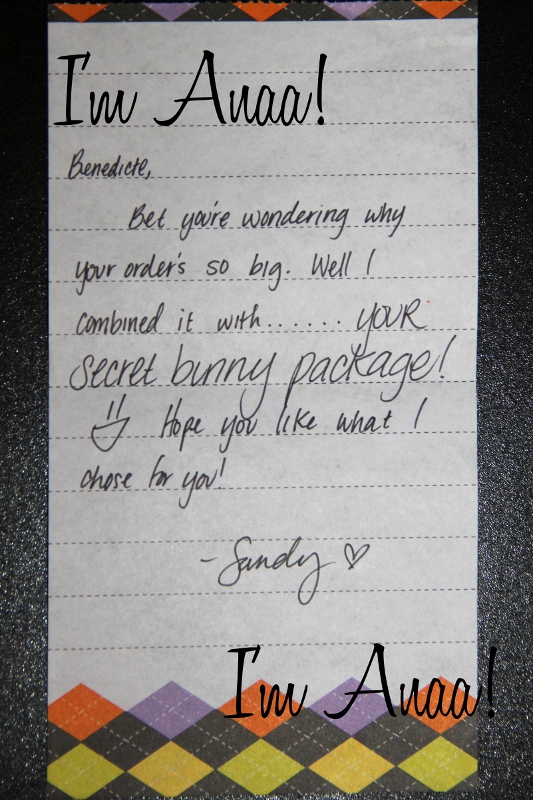 I'm Anaa!
Benedicte,
Bet you're wondering why
your order's so big. Well I
combined it with...... YOUR
secret bunny package!
Hope you like what I
chose for you!
-Sandy ♡
I'm Anaa!